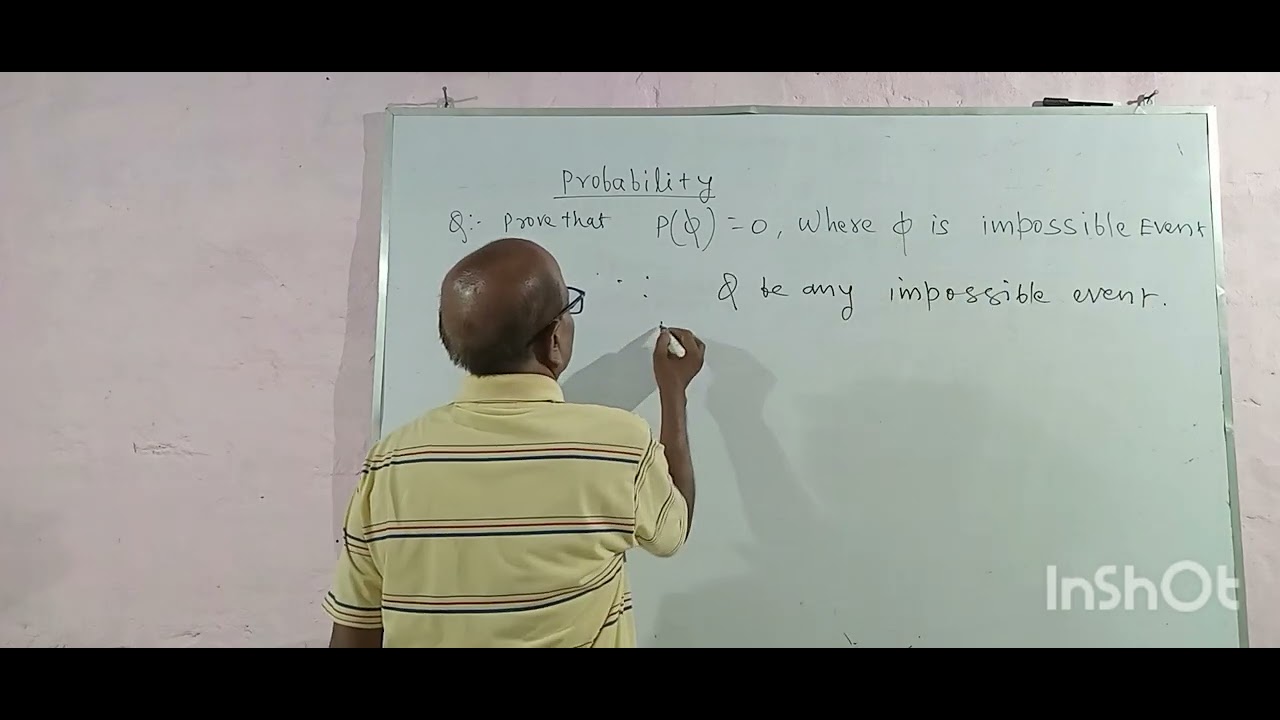 Probability
Q:- Prove that P(ϕ) = 0, Where ϕ is impossible Event
∵ ϕ be any impossible event.
InShOt